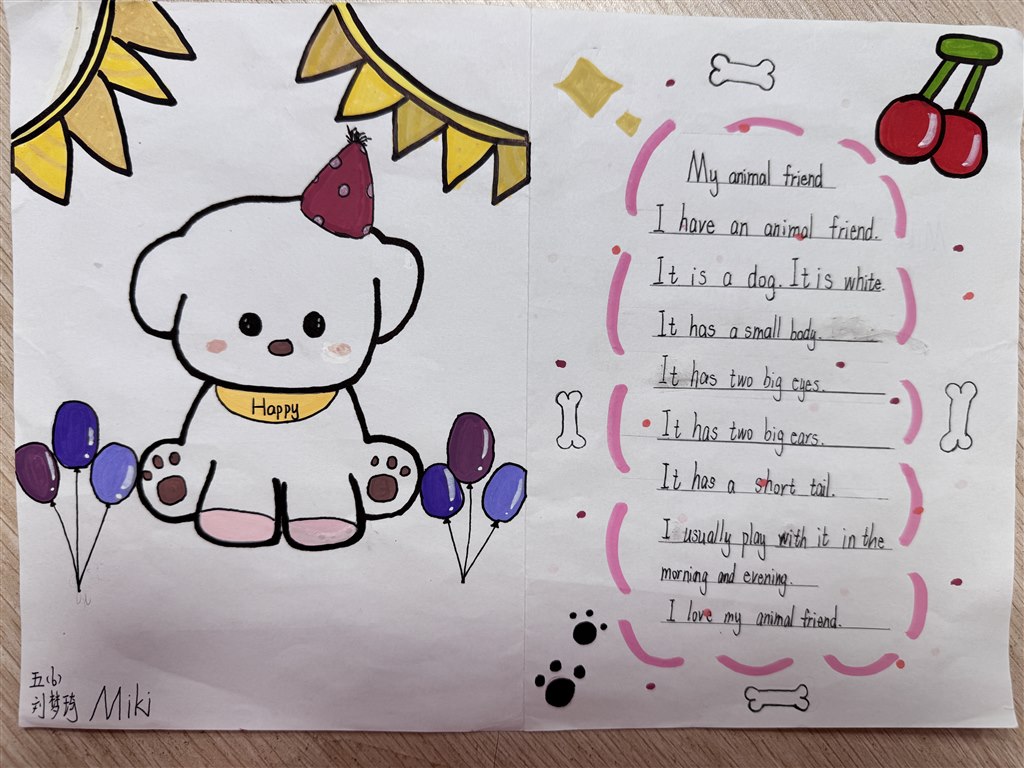 Happy
五(6)
刘梦琦 Miki
My animal friend
I have an animal friend.
It is a dog. It is white.
It has a small body.
It has two big eyes.
It has two big ears.
It has a short tail.
I usually play with it in the
morning and evening.
I love my animal friend.